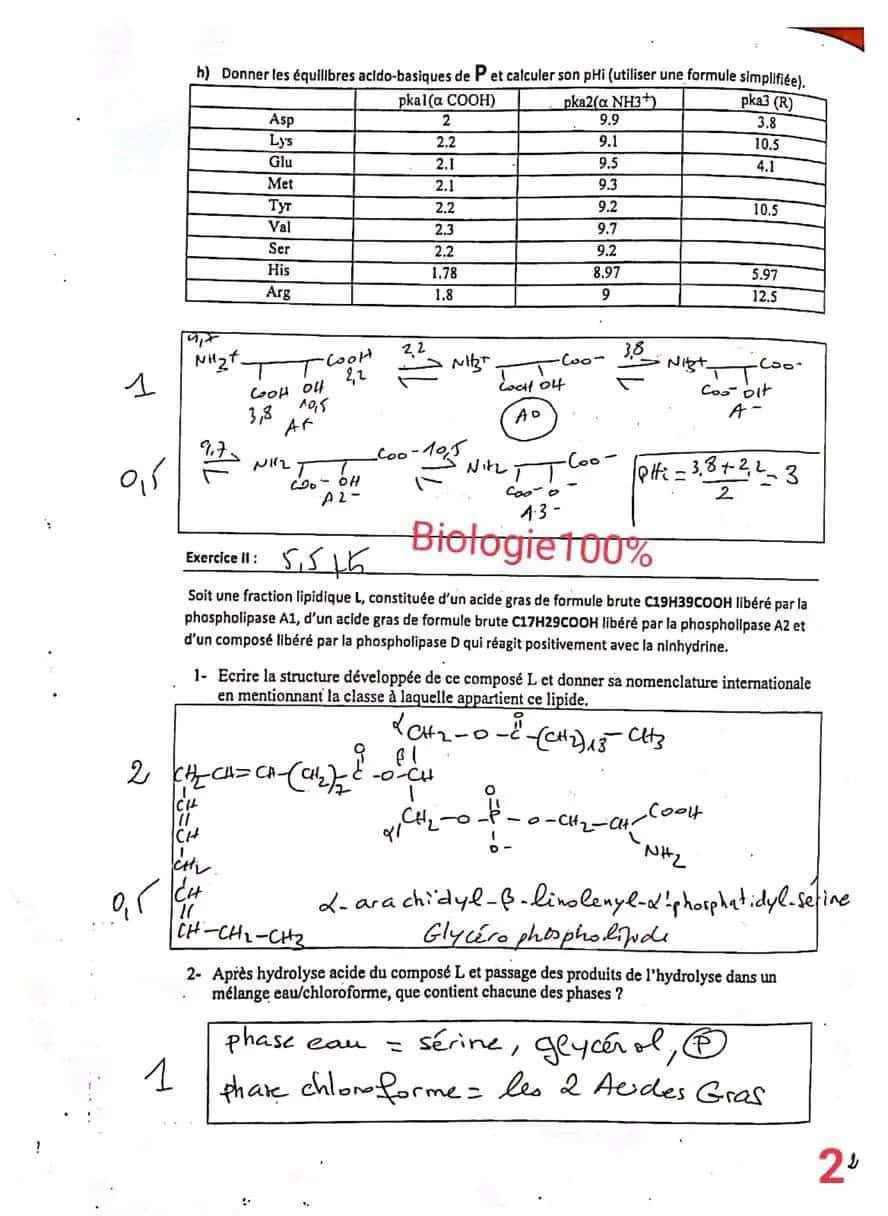 h) Donner les équilibres acido-basiques de P et calculer son pHi (utiliser une formule simplifiée).
pka1(α COOH) pka2(α NH3+) pka3 (R)
Asp 2 9.9 3.8
Lys 2.2 9.1 10.5
Glu 2.1 9.5 4.1
Met 2.1 9.3
Tyr 2.2 9.2 10.5
Val 2.3 9.7
Ser 2.2 9.2
His 1.78 8.97 5.97
Arg 1.8 9 12.5
9,7
NH3+ COOH 2,2 NH3+ COO- 3,8 NH3+ COO-
1 COOH OH 2,2 COOH OH COO- OH
3,8 10,5 A+ A0 A-
0,5 9,7 NH2 COO- 10,5 NH2 COO- pHi = 3,8 + 2,2 / 2 = 3
COO- OH COO- O-
A2- A3-
Biologie100%
Exercice II : 5,5 pts
Soit une fraction lipidique L, constituée d'un acide gras de formule brute C19H39COOH libéré par la
phospholipase A1, d'un acide gras de formule brute C17H29COOH libéré par la phospholipase A2 et
d'un composé libéré par la phospholipase D qui réagit positivement avec la ninhydrine.
1- Ecrire la structure développée de ce composé L et donner sa nomenclature internationale
en mentionnant la classe à laquelle appartient ce lipide.
α CH2-O-C-(CH2)18-CH3
O
2 CH2-CH=CH-(CH2)7-C-O-CH
O β
CH
CH α' CH2-O-P-O-CH2-CH COOH
O O- NH2
CH2
0,5 CH α-arachidyl-β-linolenyl-α'-phosphatidyl-sérine
CH-CH2-CH3 Glycérophospholipide
2- Après hydrolyse acide du composé L et passage des produits de l'hydrolyse dans un
mélange eau/chloroforme, que contient chacune des phases ?
phase eau = sérine, glycérol, P
1 phase chloroforme = les 2 Acides Gras
2